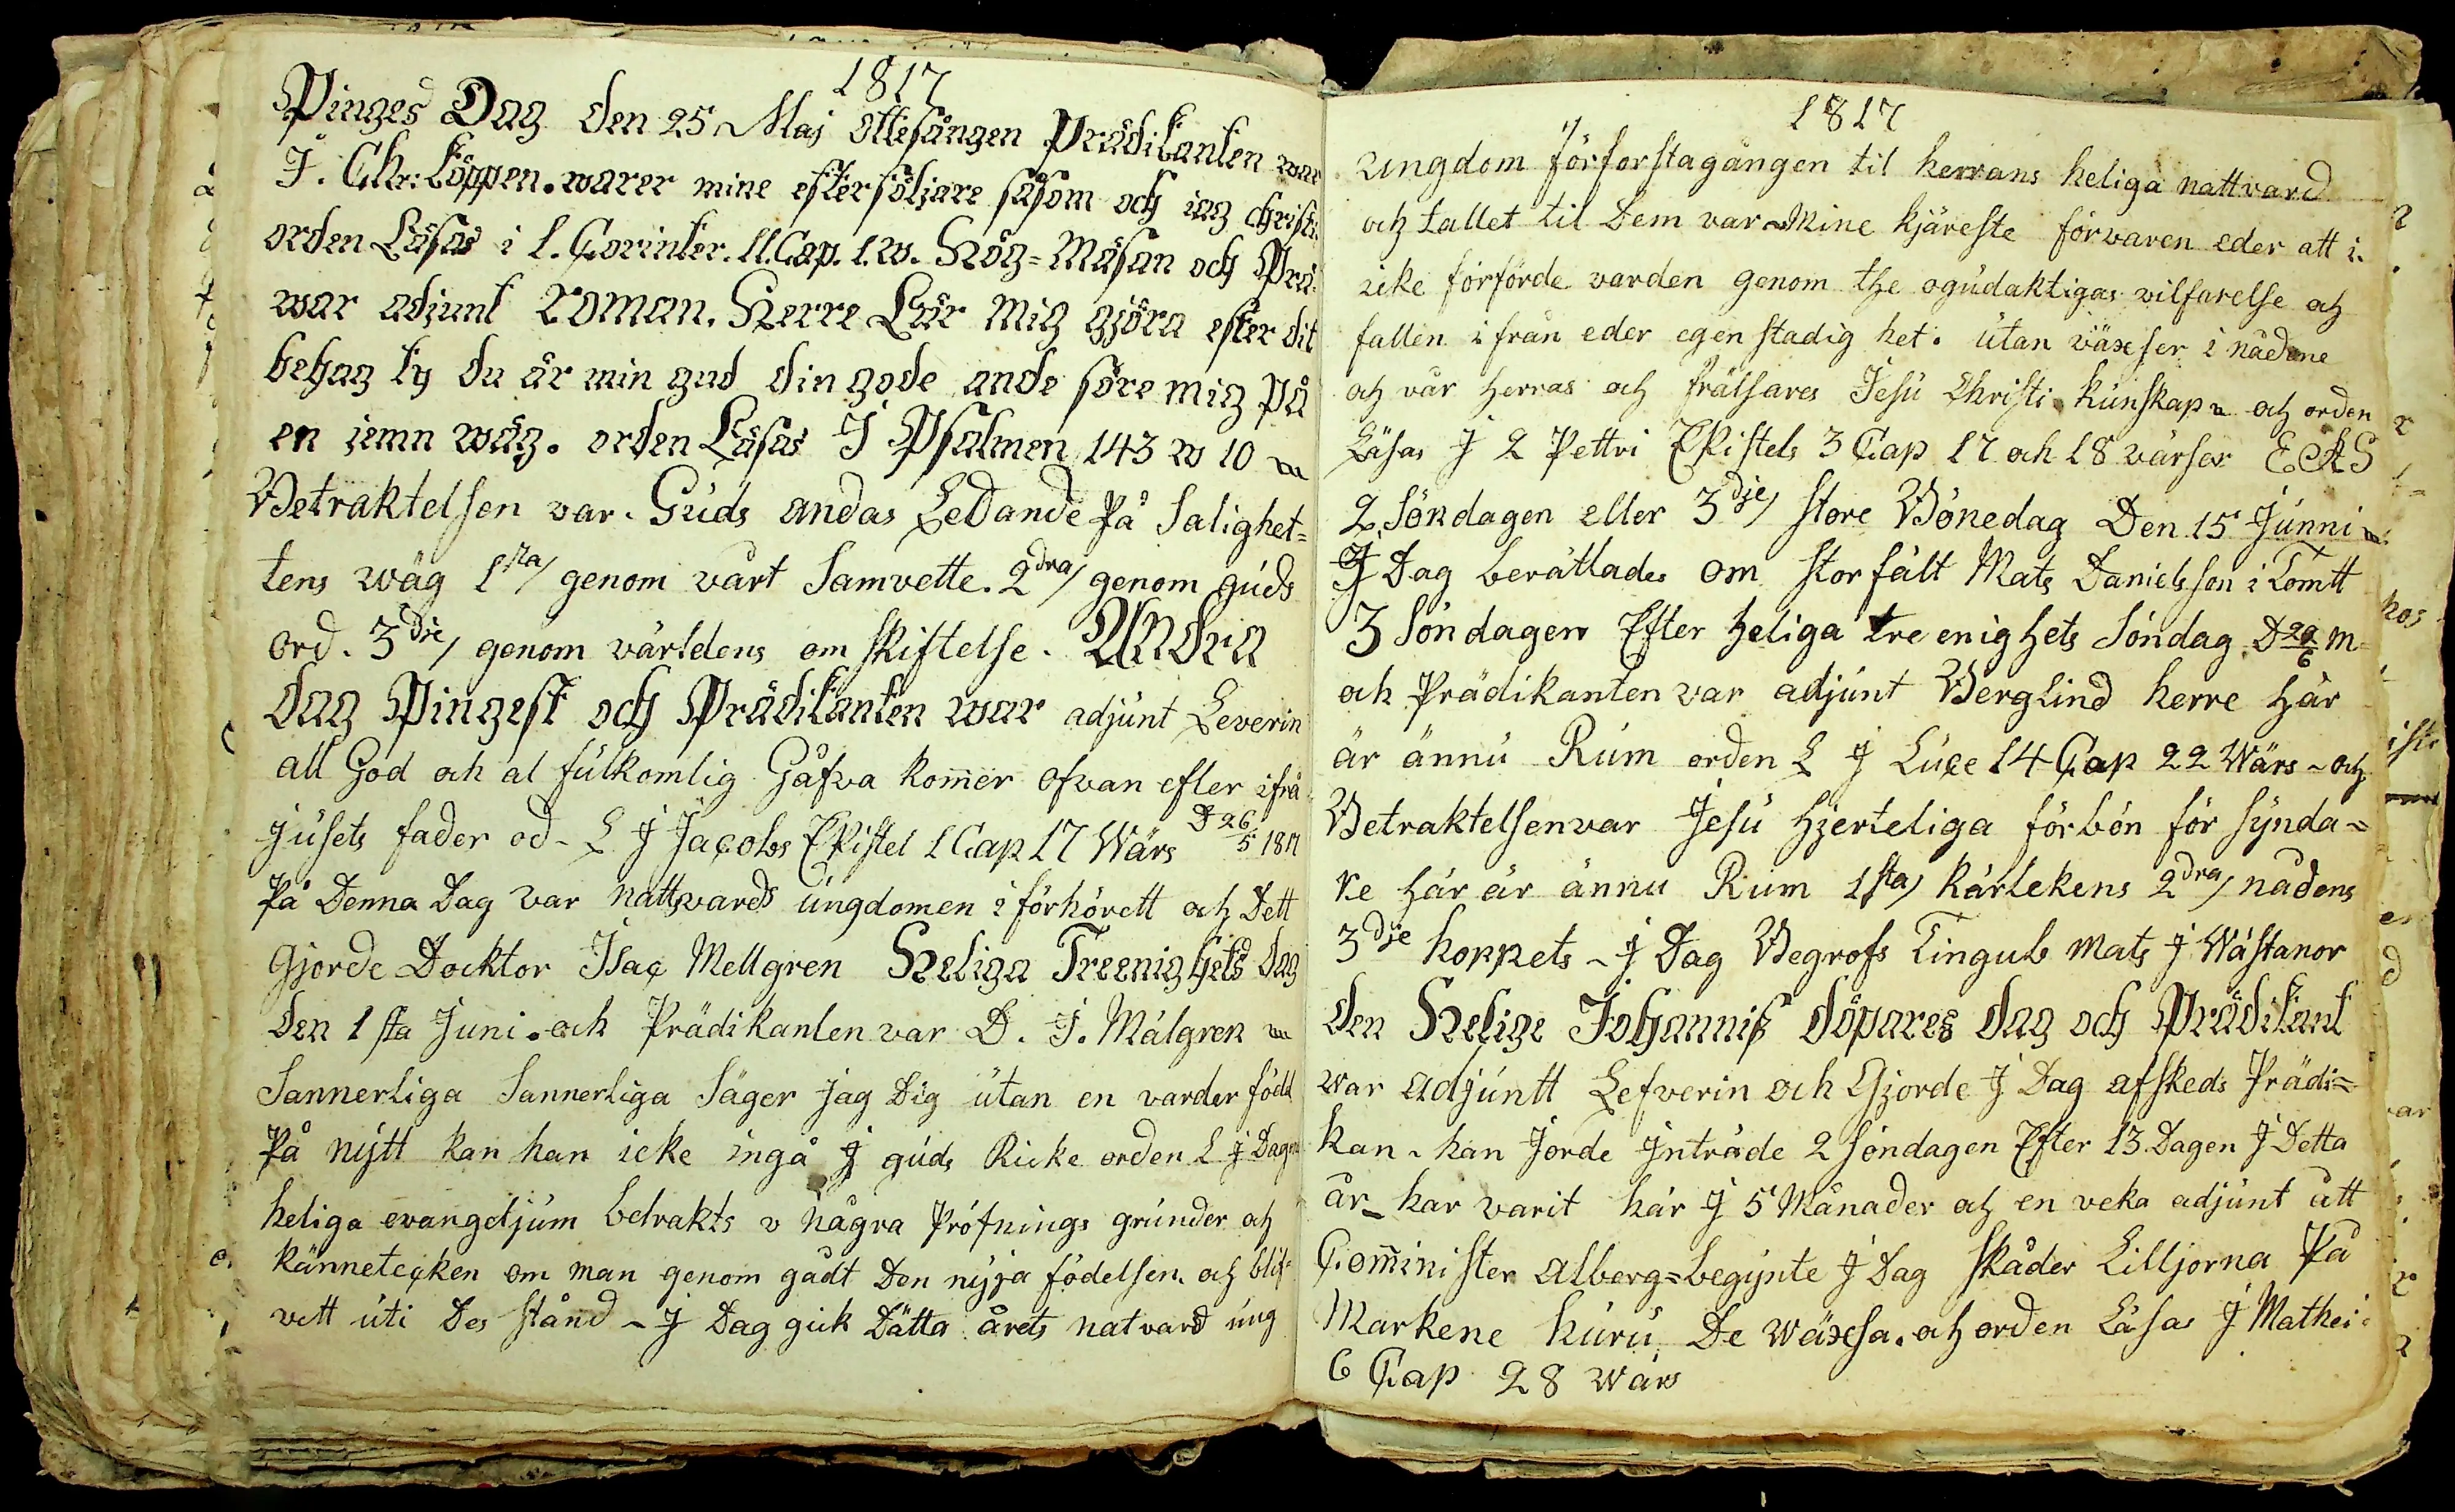 1817
Pinges Dag den 25 Maj Ottesången Prädikanten war
J. Chr: Köppen. warer mine efterföljare såsom och iag christi
orden Läsas i 1. Corinter. 11. Cap. 1. w. Hög=Mäsan och Prä.
war adjunt Roman. Herre Lär mig gjöra efter dit
behag ty du är min gud din gode ande före mig på
en jemn wäg. orden Läsas J Psalmen 143 w 10
Betraktelsen var. Guds andas Ledande på Salighet=
tens wäg 1sta/ genom vårt Samvette. 2dra/ genom guds
ord. 3die/ genom världens omskiftelse. Andra
dag Pingest och Prädikanten war adjunt Leverin
all God och al fulkomlig Gåfva kommer ofvan efter ifrå
jusets fader od- L J Jacobs EPistel 1 Cap 17 Wärs D 26/5 1817
På Denna Dag var nattvards ungdomen i förhörett och Dett
gjorde Docktor Isac Mellgren Heliga Treenighets Dag
den 1sta Juni. och Prädikanten var D. J. Mälgren
Sannerliga Sannerliga Säger jag Dig utan en varder född
På nytt kan han icke ingå J guds Ricke orden L J Dagens
heliga evangeljum betrakts v några Prófnings grunder och
kännetecken om man genom gådt Den nyja födelsen. och blif=
vitt uti Des stånd ~ J Dag gick Dätta årets natvard ung
1817
ungdom förforstagången til herrans heliga nattvard
och tallet til Dem var ~ Mine kjäreste förvaren eder att i.
icke förförde varden genom the ogudaktigas vilfarelse och
fallen ifrån eder egen stadig het. utan växser i nådene
och vår herras och frälsares Jesu Christi kunskap och orden
Läsas J 2 Pettri EPistels 3 Cap 17 och 18 värsar
2. Söndagen eller 3dje/ store Bönedag Den 15 Junni
J Dag berättades om storfält Mats Danielsson i Tomtt
3 Söndagen Efter heliga tre enighets Söndag D 22/6 m=
och Prädikanten var adjunt Berglind herre här
är ännu Rum orden L J Luce 14 Cap 22 Wärs ~ och
Betraktelsen var Jesu hjerteliga förbön för synda~
re här är ännu Rum 1sta/ kärlekens 2dra/ nådens
3dje hoppets ~ J Dag Begrofs Tinguls Mats J Wästanor
den Helige Johanniß döpares dag och Prädikant
war adjuntt Lefverin och Gjorde J Dag afskeds Prädi=
kan. han Jorde Jnträde 2 söndagen Efter 13 Dagen J Detta
år_ har varit här J 5 Månader och en veka adjunt ått
Comminister alberg=begynte J Dag skåder Lilljorna På
Markene huru De wäxsa. och orden Läsas J Mathei.
6 Cap 28 wärs